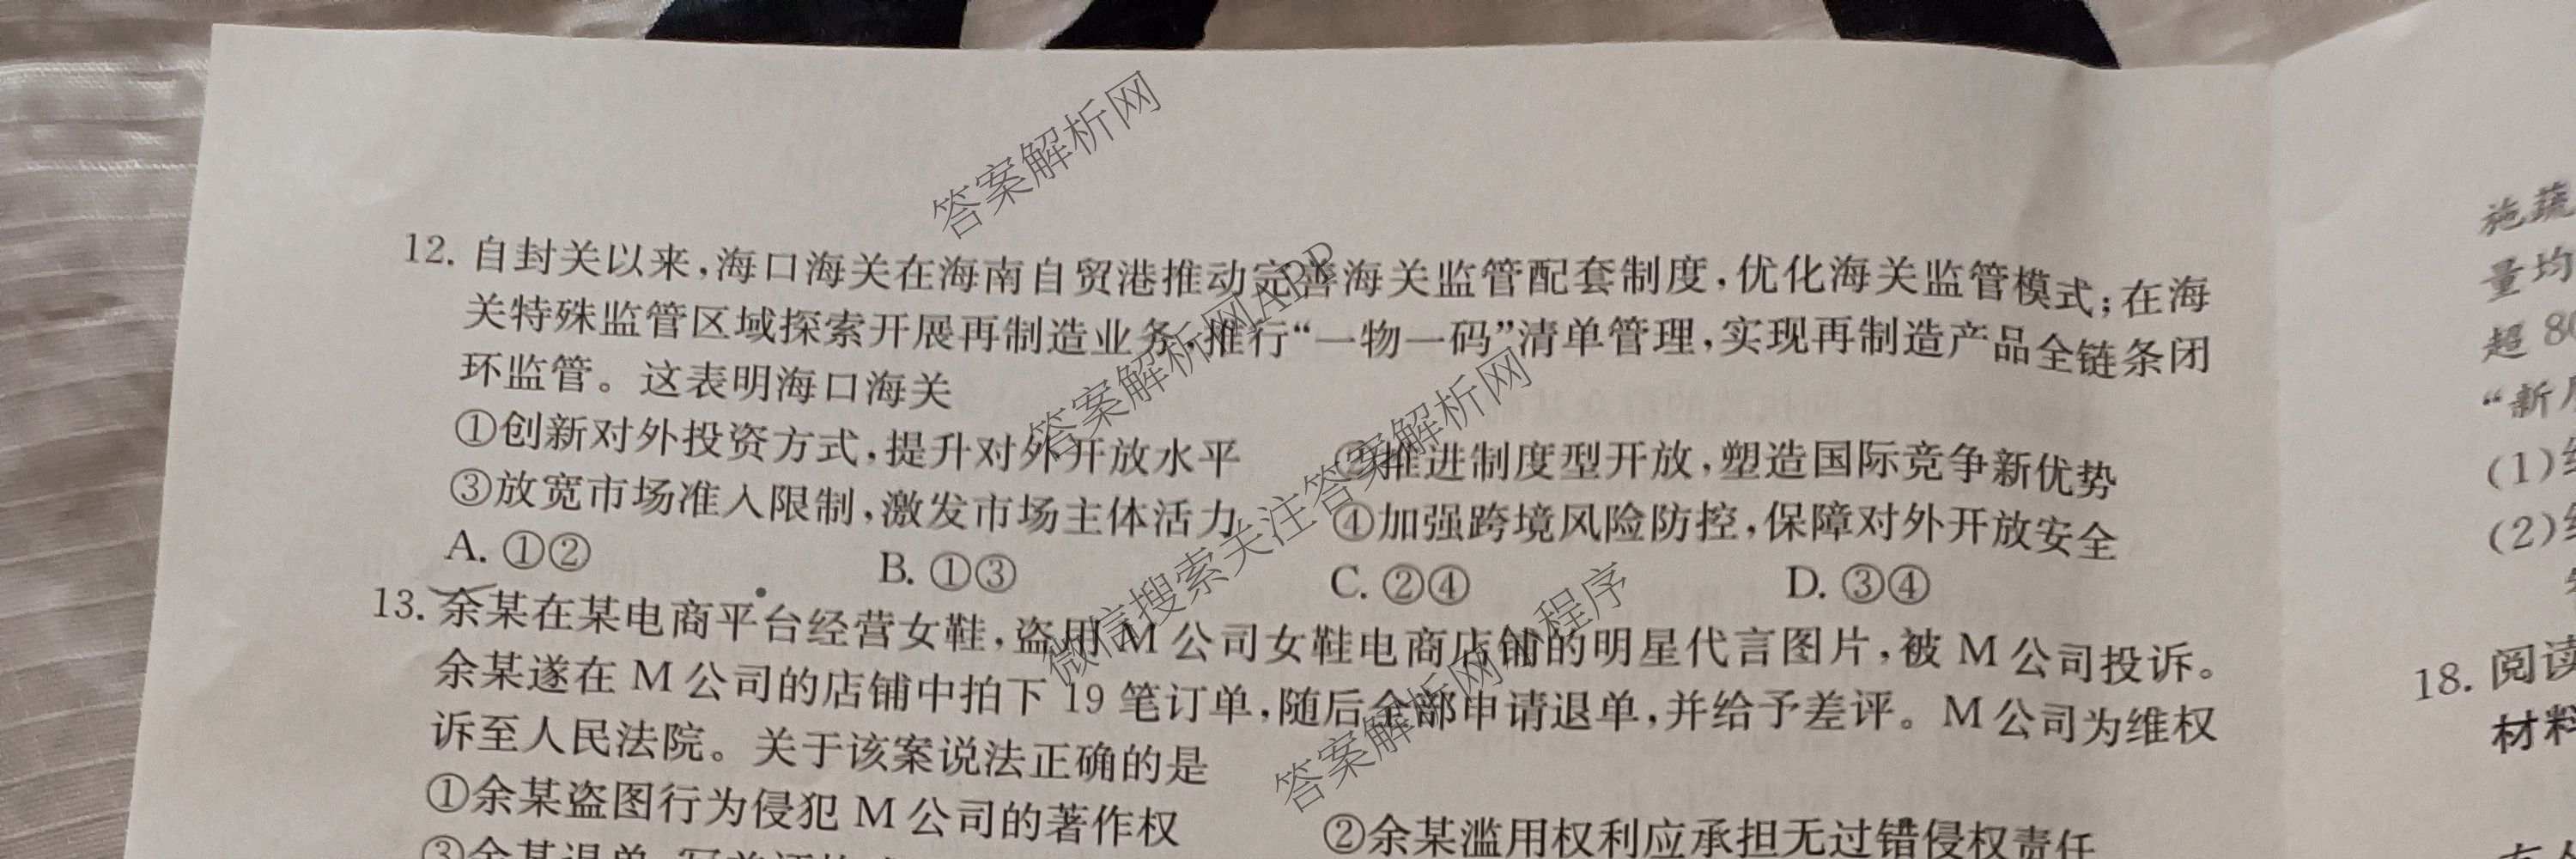 12. 自封关以来,海口海关在海南自贸港推动完善海关监管配套制度,优化海关监管模式;在海
关特殊监管区域探索开展再制造业务,推行“一物一码”清单管理,实现再制造产品全链条闭
环监管。这表明海口海关
①创新对外投资方式,提升对外开放水平 ②推进制度型开放,塑造国际竞争新优势
③放宽市场准入限制,激发市场主体活力 ④加强跨境风险防控,保障对外开放安全
A. ①② B. ①③ C. ②④ D. ③④
13. 余某在某电商平台经营女鞋,盗用 M 公司女鞋电商店铺的明星代言图片,被 M 公司投诉。
余某遂在 M 公司的店铺中拍下 19 笔订单,随后全部申请退单,并给予差评。M 公司为维权
诉至人民法院。关于该案说法正确的是
①余某盗图行为侵犯 M 公司的著作权 ②余某滥用权利应承担无过错侵权责任
③余某退单
施蔬
量均
超 80
“新
(1)
(2)
18. 阅读
材料
答案解析网
答案解析网APP
微信搜索关注答案解析网
答案解析网小程序